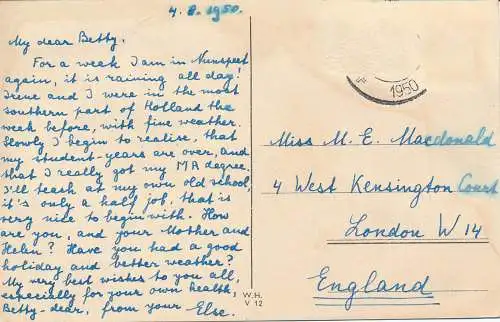 4.8.1950.
My dear Betty.
For a week I am in Nunspeet
again, it is raining all day!
Irene and I were in the most
southern part of Holland the
week before, with fine weather.
Slowly I begin to realise, that
my student-years are over, and
that I really got my MA degree.
I'll teach at my own old school,
it's only a half job, that is
very nice to begin with. How
are you, and your Mother and
Helen? Have you had a good
holiday and better weather?
My very best wishes to you all,
especially for your own health,
Betty-dear, from your Else.
1950
Miss M. E. Macdonald
4 West Kensington Court
London W 14
England
W.H.
V 12